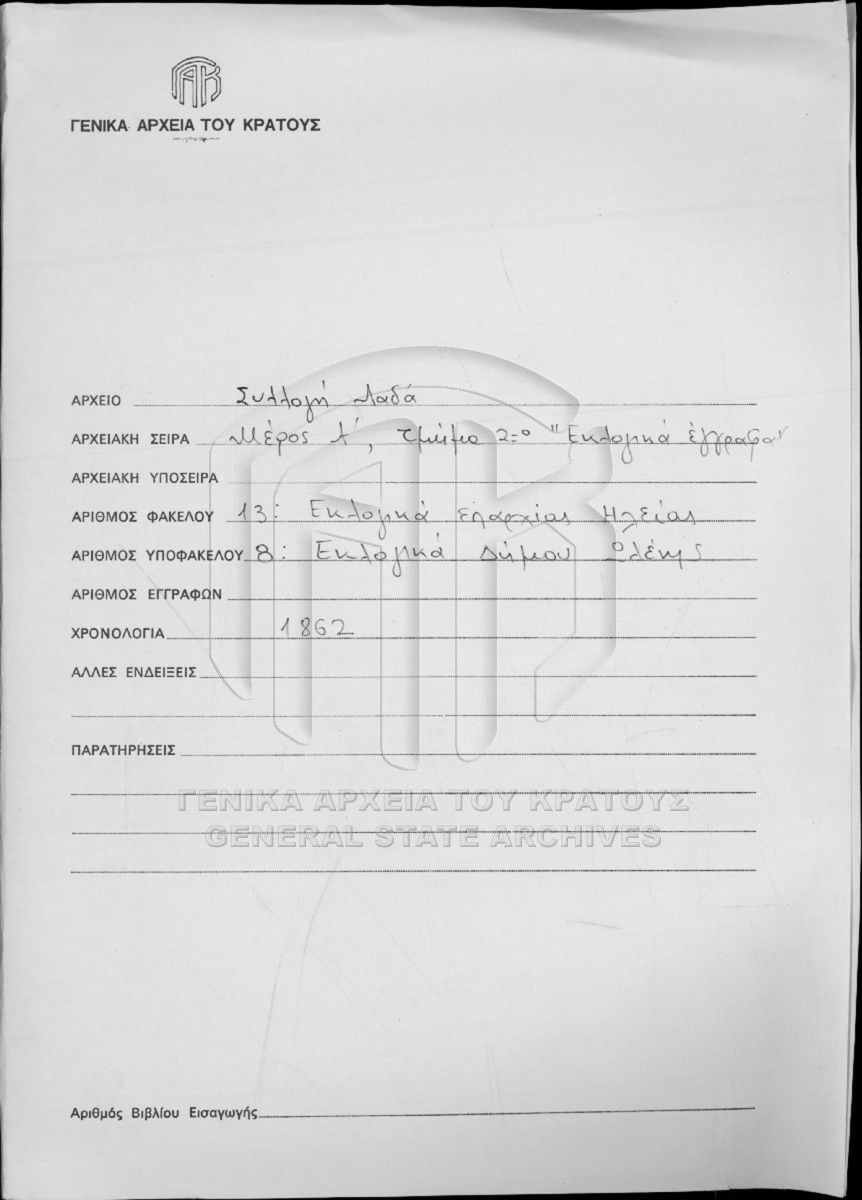 ΓΕΝΙΚΑ ΑΡΧΕΙΑ ΤΟΥ ΚΡΑΤΟΥΣ
ΑΡΧΕΙΟ Συλλογή Λαδά
ΑΡΧΕΙΑΚΗ ΣΕΙΡΑ Μέρος Α', τμήμα 2ο "Εκλογικά έγγραφα"
ΑΡΧΕΙΑΚΗ ΥΠΟΣΕΙΡΑ
ΑΡΙΘΜΟΣ ΦΑΚΕΛΟΥ 13: Εκλογικά επαρχίας Ηλείας
ΑΡΙΘΜΟΣ ΥΠΟΦΑΚΕΛΟΥ 8: Εκλογικά Δήμου Ωλένης
ΑΡΙΘΜΟΣ ΕΓΓΡΑΦΩΝ
ΧΡΟΝΟΛΟΓΙΑ 1862
ΑΛΛΕΣ ΕΝΔΕΙΞΕΙΣ
ΠΑΡΑΤΗΡΗΣΕΙΣ
ΓΕΝΙΚΑ ΑΡΧΕΙΑ ΤΟΥ ΚΡΑΤΟΥΣ
GENERAL STATE ARCHIVES
Αριθμός Βιβλίου Εισαγωγής